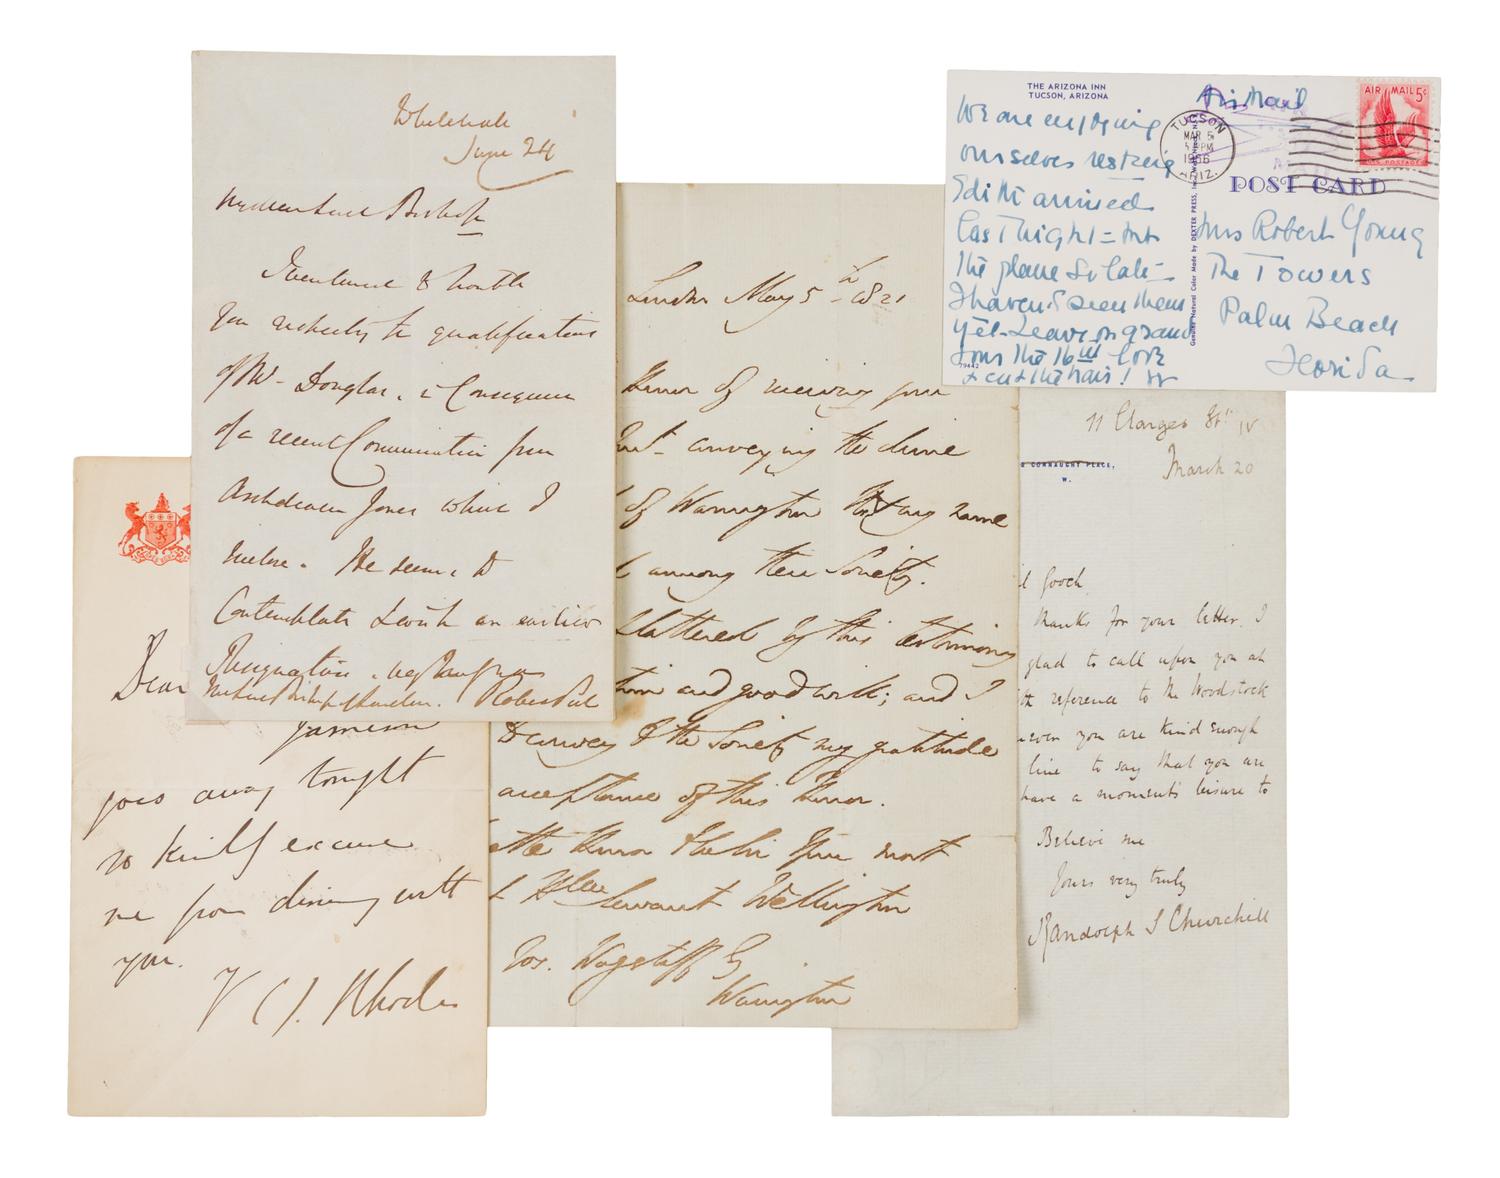 Whitehall
June 24
My dear Lord Bishop
I venture to trouble
you respecting the qualifications
of Mr Douglas, in Consequence
of a recent Communication from
Archdeacon Jones which I
enclose. He seems to
Contemplate such an earlier
Resignation
Robert Peel
London May 5th 1821
Honor of receiving your
conveying the desire
of Warrington that my name
among their Society.
flattered by this testimony
and good will; and I
to convey to the Society my gratitude
acceptance of this Honor.
the Honor to be Your most
Servant Wellington
Wagstaff Esq
Warrington
THE ARIZONA INN
TUCSON, ARIZONA
Air Mail
AIR MAIL 5¢
U.S. POSTAGE
TUCSON
MAR 5
PM
1956
ARIZ.
POST CARD
We are enjoying
ourselves resting
Edith arrived
last night = but
the plane so late -
I haven't seen them
yet - Leave on grand
tour the 16th Look
+ cut the hair! W
79442
Genuine Natural Color Made by DEXTER PRESS, Inc.
Mrs Robert Young
The Towers
Palm Beach
Florida
11 Clarges St. W
CONNAUGHT PLACE,
W.
March 20
Gooch
thanks for your letter. I
glad to call upon you at
reference to the Woodstock
you are kind enough
line to say that you are
have a moment's leisure to
Believe me
Yours very truly
Randolph S Churchill
Dear
Jameson
goes away tonight
so kindly excuse
me from dining with
you.
Y C J. Rhodes